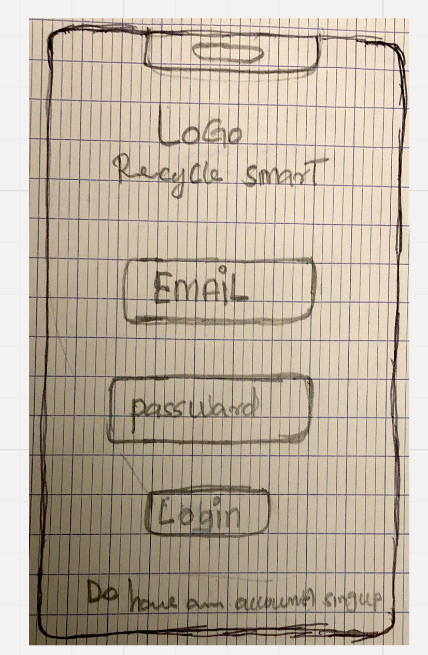 LOGO
Recycle smart
EMAIL
password
Login
Do have an account singup